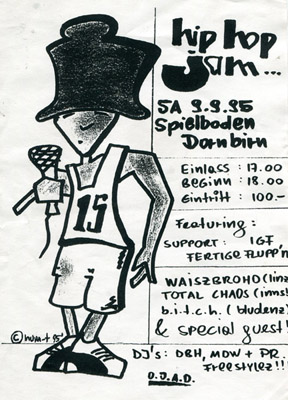 hip hop
jam...
SA 9.9.95
Spielboden
Dornbirn
Einlass : 17.00
Beginn : 18.00
Eintritt : 100.-
Featuring :
SUPPORT : IGT
FERTIGE FLUPP'N
WAISZBROHD (linz
TOTAL CHAOS (inns!
b.i.t.c.h. ( bludenz)
& special guest!
DJ's : DBH, MDW + P.R.
Freestylez!!!
O.J.A.D.
15